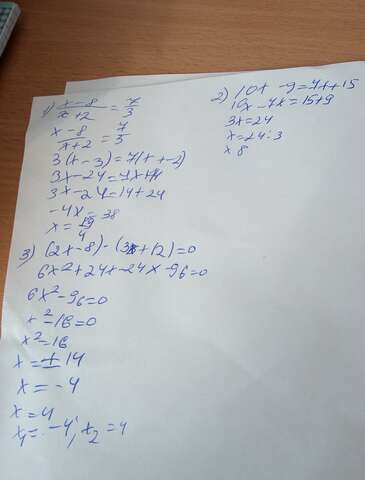 1) x-8/x+2 = 7/3
x-8/x+2 = 7/3
3(x-3)=7(x+-2)
3x-24=7x+14
3x-24=14+24
-4x=38
x=19/4
2) 10x -9=7x+15
10x-7x=15+9
3x=24
x=24:3
x 8
3) (2x-8)-(3x+12)=0
6x²+24x-24x-96=0
6x²-96=0
x²-16=0
x²=16
x=±14
x=-4
x=4
x₁=-4; x₂=4